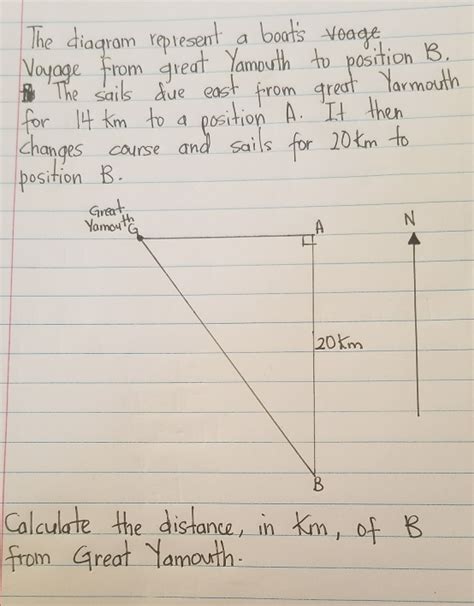 The diagram represent a boat's voage
Voyage from great Yamouth to position B.
The sails due east from great Yarmouth
for 14 Km to a position A. It then
changes course and sails for 20km to
position B.
Great
Yamouth
G
A
N
20km
B
Calculate the distance, in Km, of B
from Great Yamouth.